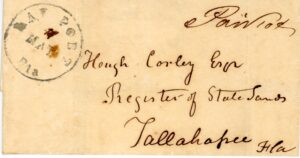 BAY PORT
4
MAR
Fla
Paid
Hough Corley Esqr
Register of State Lands
Tallahassee Fla